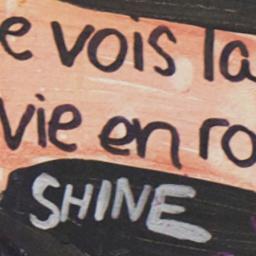 e vois la
vie en ro
SHINE